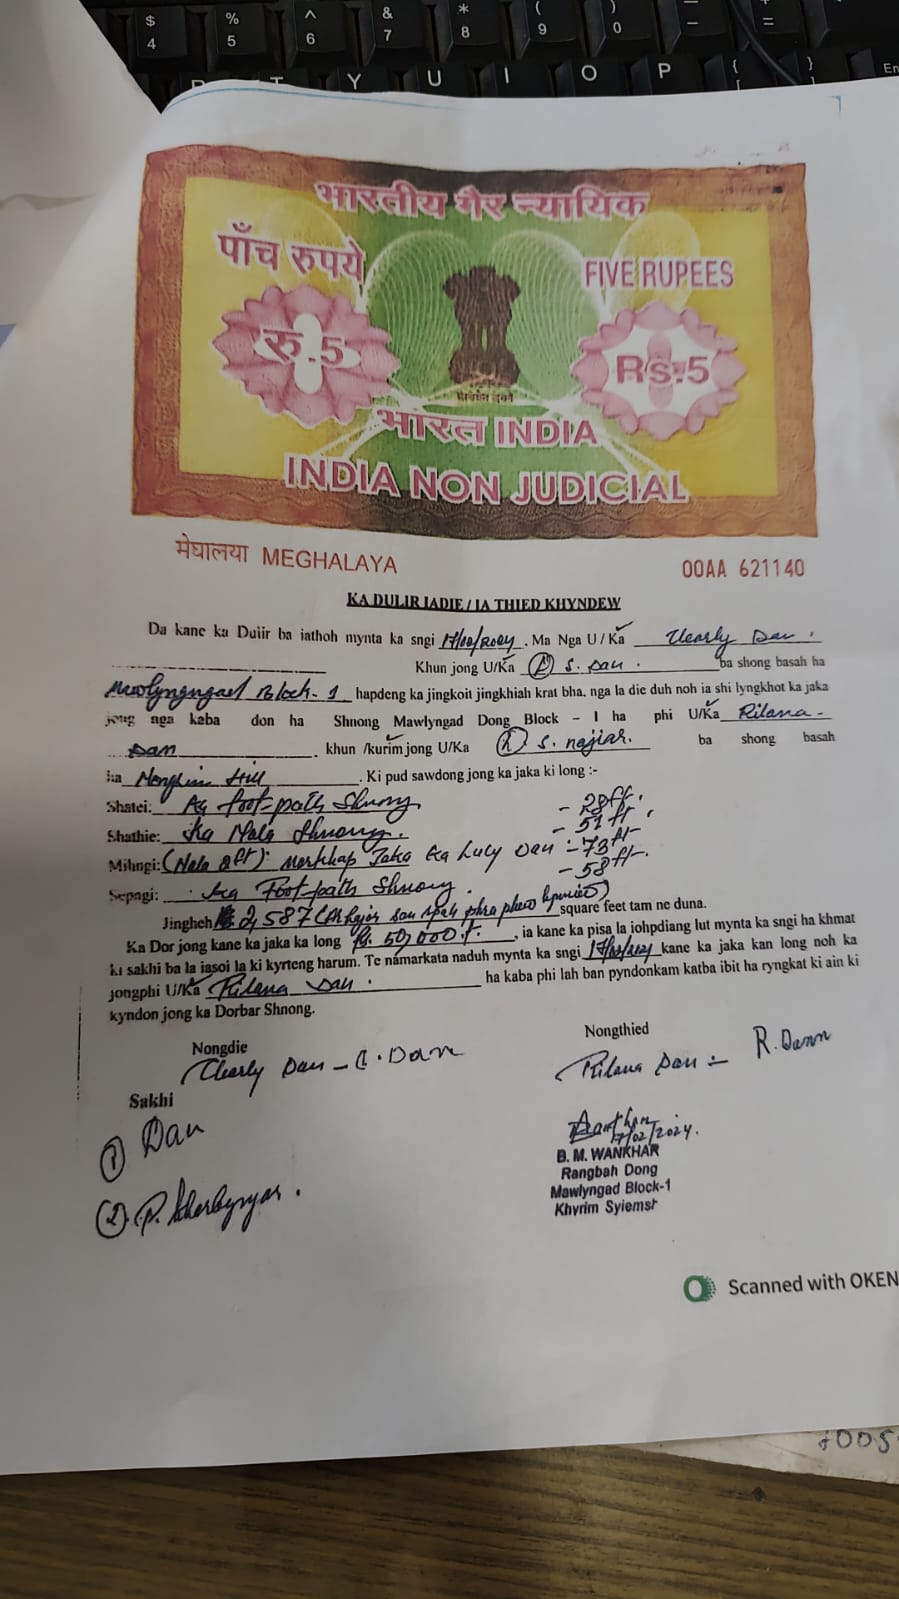 $ % ^ & * ( ) _ + =
4 5 6 7 8 9 0 -
T Y U I O P { [ } ] En
भारतीय गैर न्यायिक
पाँच रुपये
FIVE RUPEES
रु.5
Rs.5
सत्यमेव जयते
भारत INDIA
INDIA NON JUDICIAL
मेघालया MEGHALAYA
00AA 621140
KA DULIR IADIE / IA THIED KHYNDEW
Da kane ka Dulir ba iathoh mynta ka sngi 17/02/2024. Ma Nga U / Ka Clearly Dan.
Khun jong U/Ka (L) S. Dan. ba shong basah ha
Mawlyngngad Block-1 hapdeng ka jingkoit jingkhiah krat bha, nga la die duh noh ia shi lyngkhot ka jaka
jong nga kaba don ha Shnong Mawlyngad Dong Block – I ha phi U/Ka Rilana
Dan khun /kurim jong U/Ka (L) S. nojiar. ba shong basah
ha Nongkin Hill. Ki pud sawdong jong ka jaka ki long :-
Shatei: foot-path Shnong - 28ft.
Shathie: Ka Nala Shnong. - 51 ft.
Mihngi: (Nala 2ft). Markhap Jaka Ka Lucy Dan - 73 ft-
Sepngi: Ka Foot-path Shnong. - 58 ft-.
Jingheh 2,587 (Ar hajar san spah phra phew hynniew) square feet tam ne duna.
Ka Dor jong kane ka jaka ka long Rs. 50,000.F., ia kane ka pisa la iohpdiang lut mynta ka sngi ha khmat
ki sakhi ba la iasoi la ki kyrteng harum. Te namarkata naduh mynta ka sngi 17/02/2024 kane ka jaka kan long noh ka
jongphi U/Ka Rilana Dan. ha kaba phi lah ban pyndonkam katba ibit ha ryngkat ki ain ki
kyndon jong ka Dorbar Shnong.
Nongdie
Nongthied
Clearly Dan - C. Dan
Rilana Dan :- R. Dann
Sakhi
① Dan
② P. Kharbyngar.
17/02/2024.
B. M. WANKHAR
Rangbah Dong
Mawlyngad Block-1
Khyrim Syiemst
Scanned with OKEN